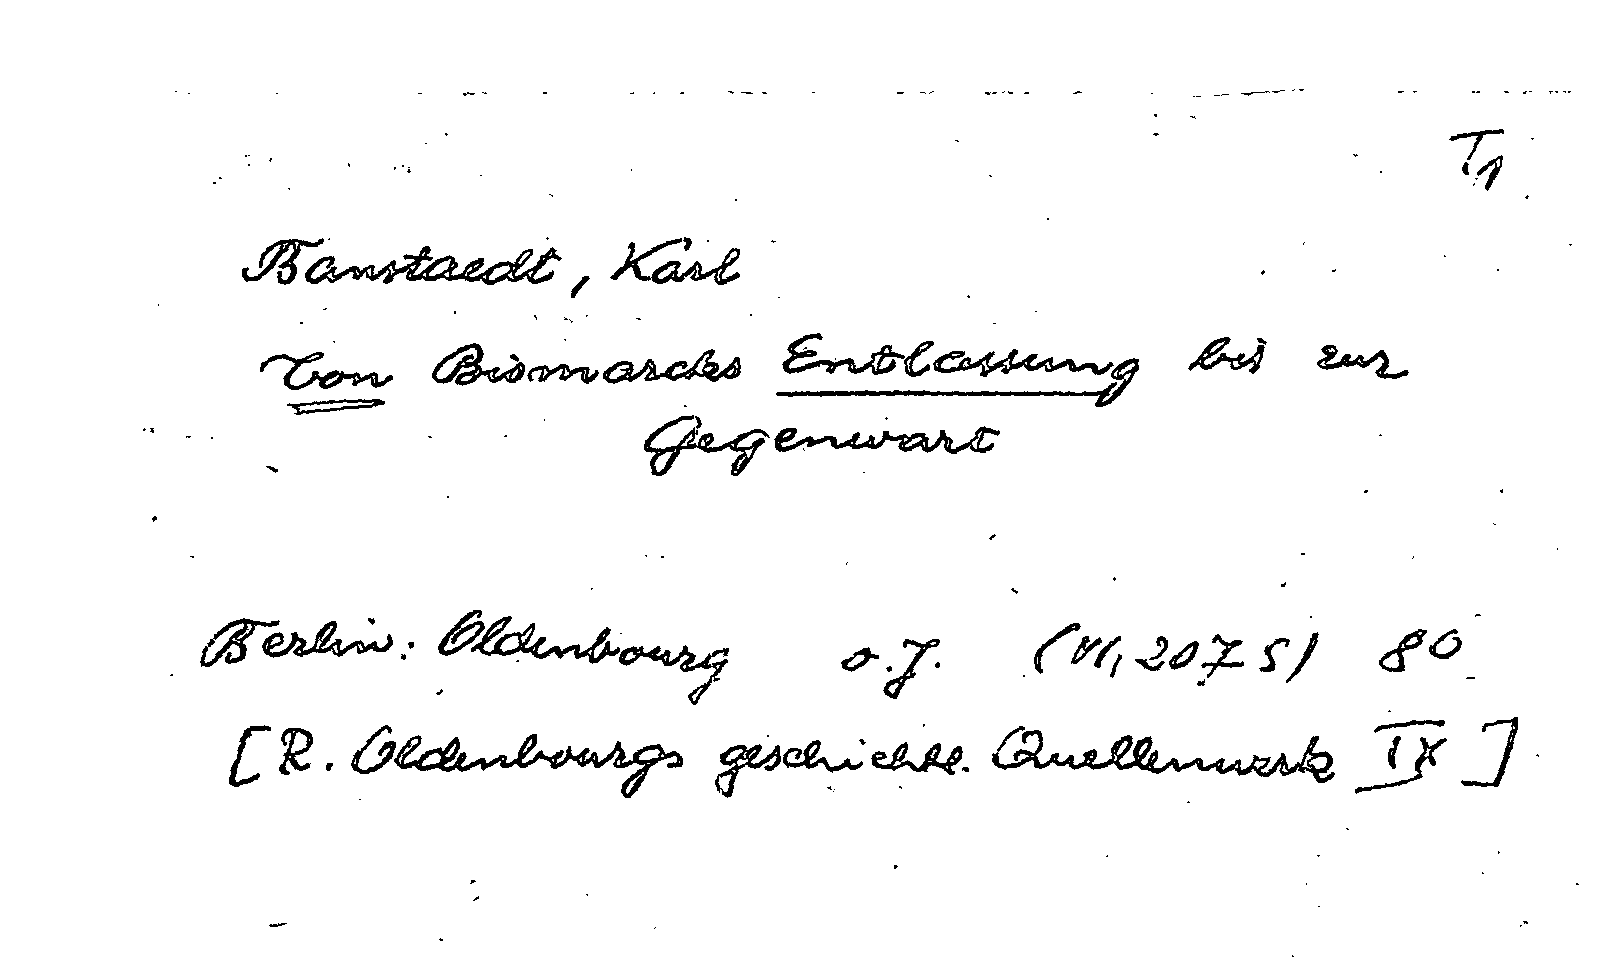 T1
Banstaedt, Karl
Von Bismarcks Entlassung bis zur
Gegenwart
Berlin: Oldenbourg o.J. (VI, 207 S) 80
[R. Oldenbourgs geschichtl. Quellenwerk IX]